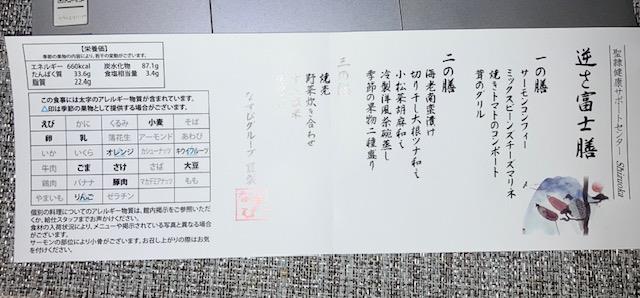 聖隷健康サポートセンター Shizuoka
逆さ富士膳
一の膳
サーモンコンフィー
ミックスビーンズチーズマリネ
焼きトマトのコンポート
茸のグリル
二の膳
海老南蛮漬け
切り干し大根ツナ和え
小松菜胡麻和え
冷製洋風茶碗蒸し
季節の果物二種盛り
三の膳
焼売
野菜炊き合わせ
なすびグループ
【栄養価】
季節の果物の内容により、若干の変動がございます。
エネルギー 660kcal 炭水化物 87.1g
たんぱく質 33.6g 食塩相当量 3.4g
脂質 22.4g
この食事には太字のアレルギー物質が含まれています。
△印は季節の果物として提供する場合がございます。
えび かに くるみ 小麦 そば
卵 乳 落花生 アーモンド あわび
いか いくら オレンジ カシューナッツ キウイフルーツ
牛肉 ごま さけ さば 大豆
鶏肉 バナナ 豚肉 マカデミアナッツ もも
やまいも りんご ゼラチン
個別の料理についてのアレルギー物質は、館内掲示をご参照いただくか、給仕スタッフまでお声がけください。
食材の入荷状況により、メニューや掲示されている写真と異なる場合がございます。
サーモンの部位により小骨がございます。お召し上がりの際はお気を付けください。